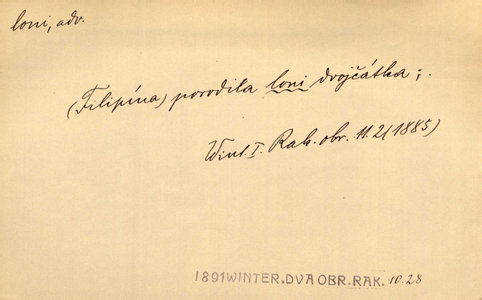 loni, adv.
(Filipína) porodila loni dvojčátka;.
Wint. I. Rak. obr. 11.2 (1885)
1891WINTER.DVA OBR.RAK. 10.28